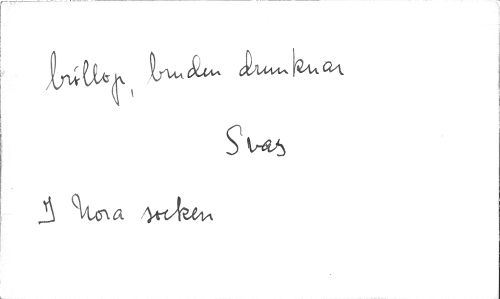 bröllop, bruden drunknar
Svag
I Nora socken